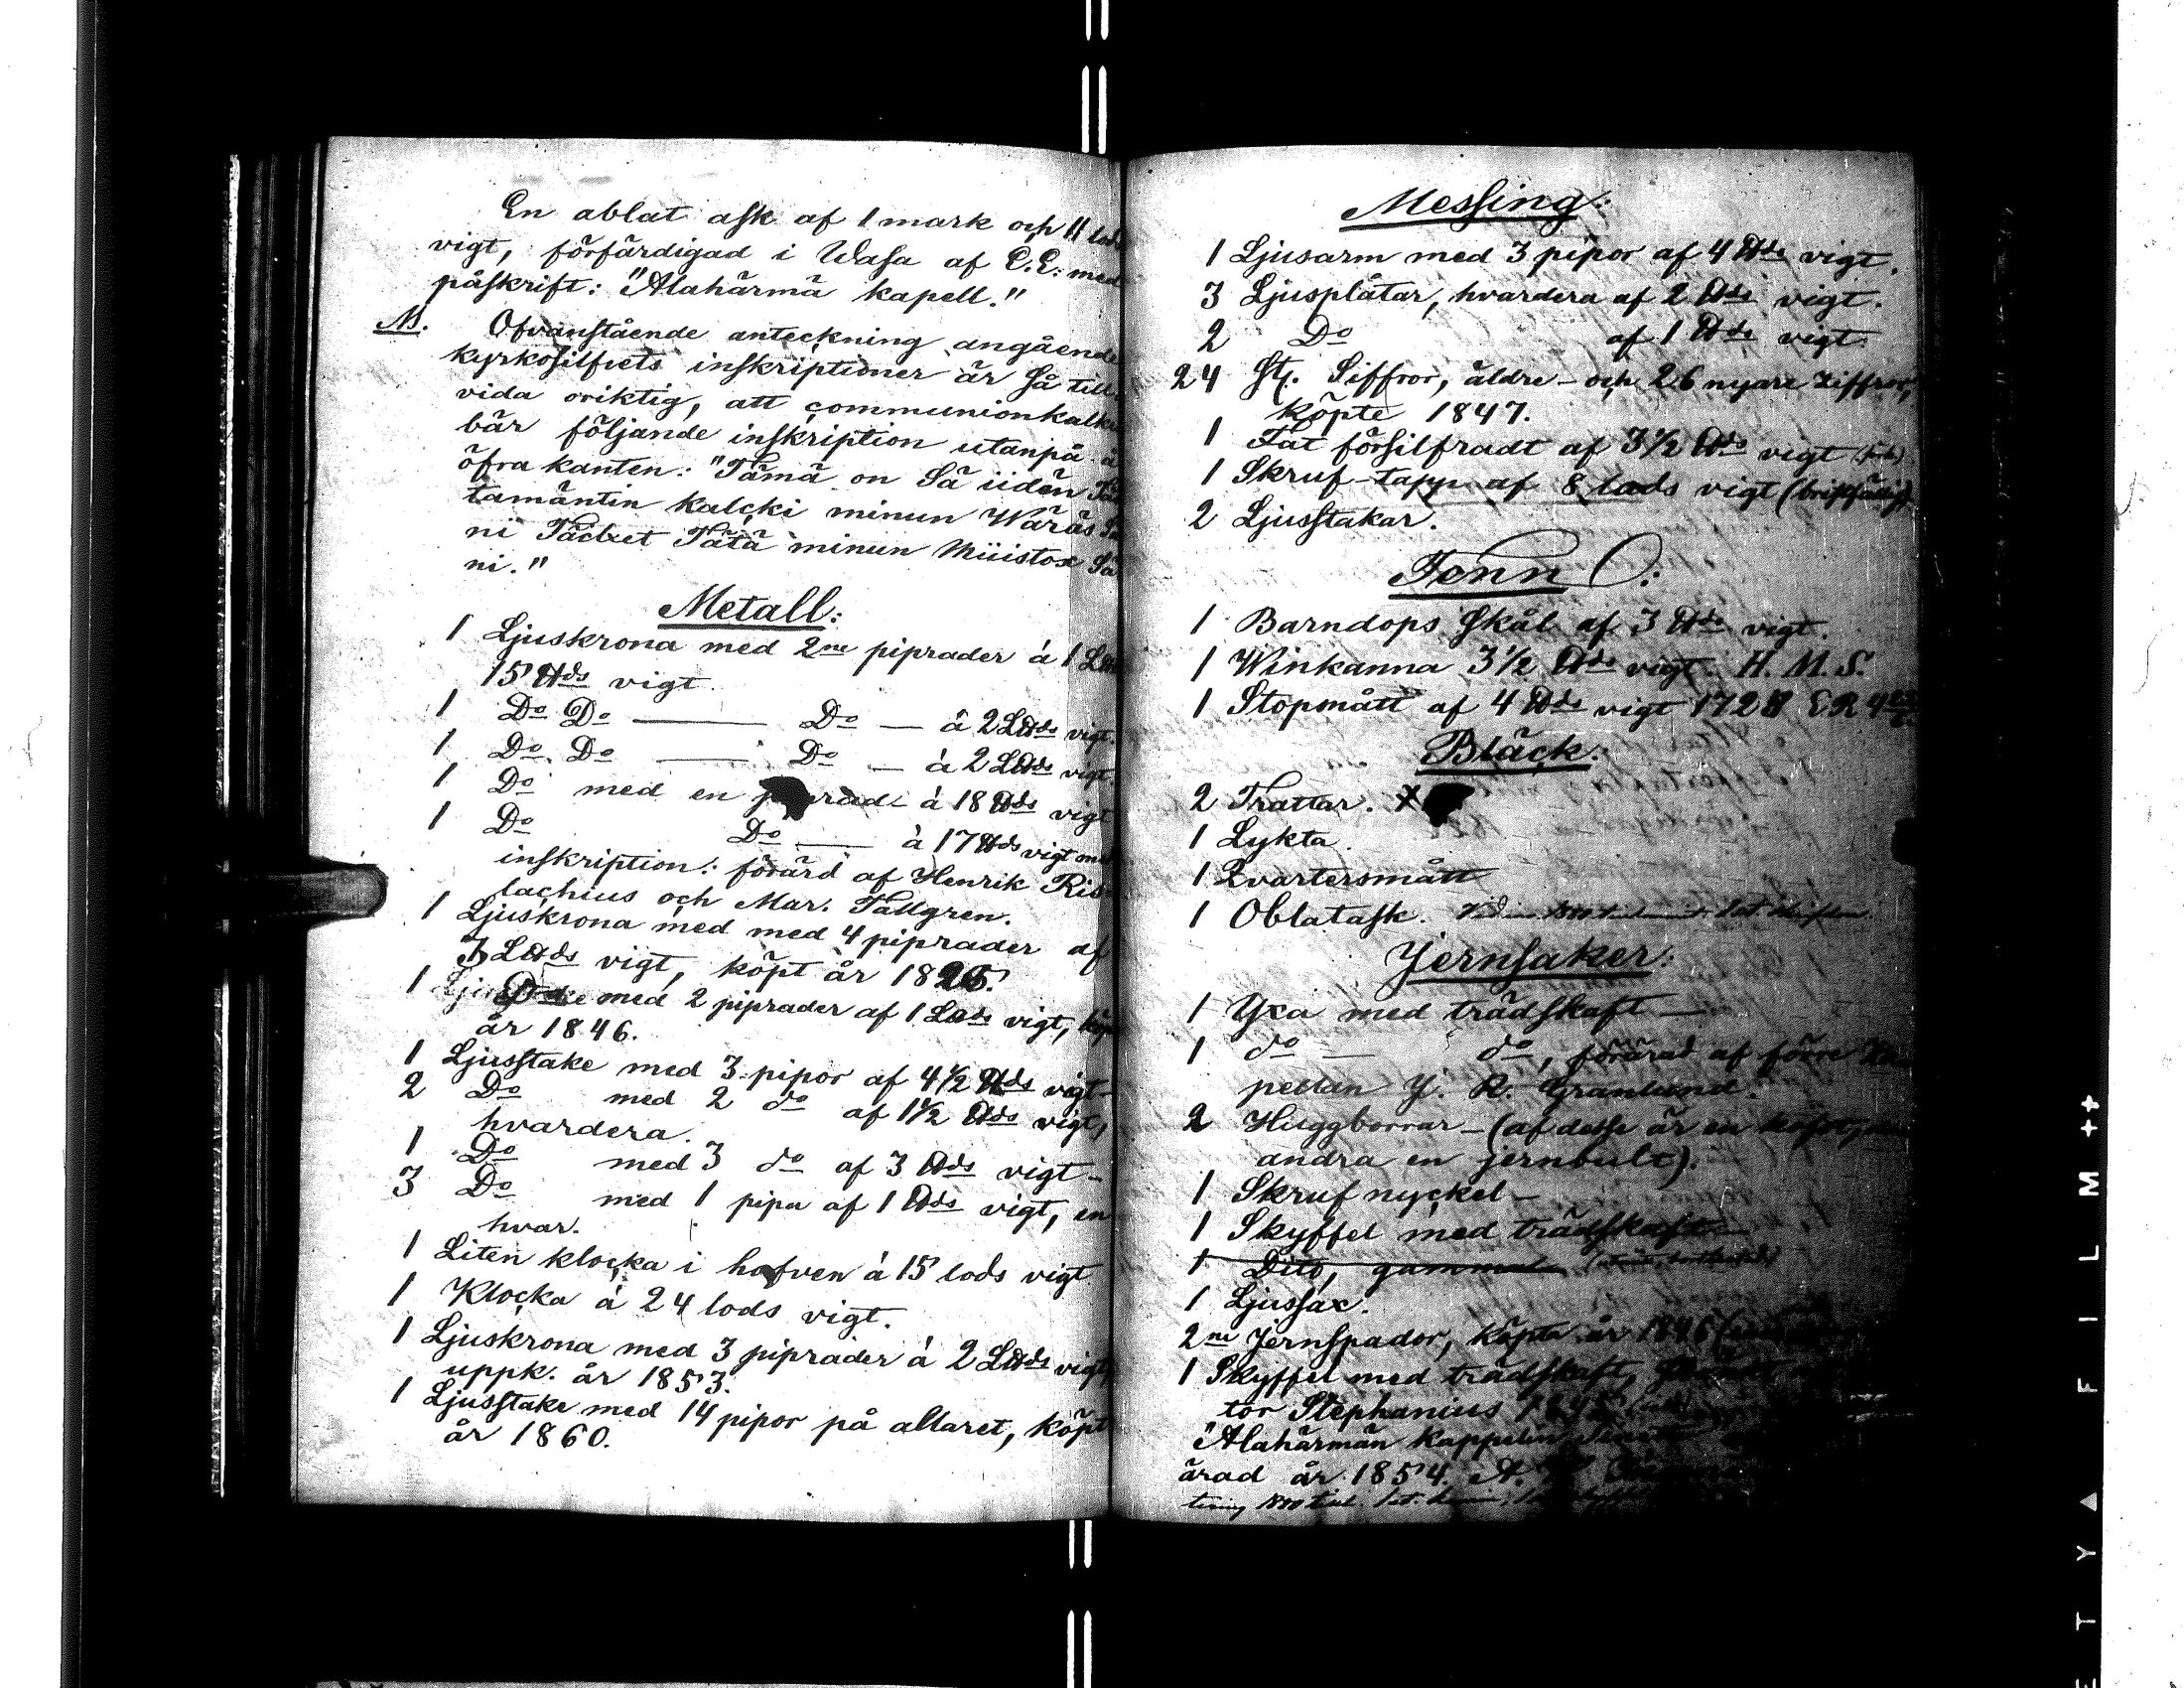 En ablat ask af 1 mark och 11 lod
vigt, förfärdigad i Wasa af C.E: med
påskrift: "Alahärmä kapell."
NB. Ofvanstående anteckning angående
kyrkosilfrets inskriptioner är så till
vida oriktig, att communionkalken
bär följande inskription utanpå å
öfra kanten: "Tämä on Sä üiden
tamäntin kalcki minun Wäräs
ni Täcket Tätä minun Müistox
ni."
Metall:
1 Ljuskrona med 2ne piprader á 1 L℔
15 ℔ds vigt.
1 Do Do — Do — á 2 L℔ds vigt.
1 Do. Do — Do — á 2 L℔ds vigt.
1 Do med en piprad á 18 ℔ds vigt
1 Do Do — á 17 ℔ds vigt
inskription: förärd af Henrik
lachius och Mar. Tallgren.
1 Ljuskrona med med 4 piprader af
L℔ds vigt, köpt år 1825.
1 med 2 piprader af 1 L℔ds vigt, köpt
år 1846.
1 Ljusstake med 3 pipor af 4½ ℔ds vigt-
2 Do med 2 do af 1½ ℔ds vigt,
hvardera.
1 Do med 3 do af 3 ℔ds vigt-
3 Do med 1 pipa af 1 ℔ds vigt, en
hvar.
1 Liten klocka i hofven á 15 lods vigt
1 Klocka á 24 lods vigt.
1 Ljuskrona med 3 piprader á 2 L℔ds vigt,
uppk. år 1853.
1 Ljusstake med 14 pipor på altaret, köpt
år 1860.
Messing:
1 Ljusarm med 3 pipor af 4 ℔ds vigt.
3 Ljusplåtar, hvardera af 2 ℔ds vigt.
2 Do af 1 ℔ds vigt.
24 St. Siffror, äldre - och 26 nyare ziffror,
köpte 1847.
1 Fat försilfradt af 3½ ℔ds vigt
1 Skruf-tapp af 8 lods vigt (bristfällig)
2 Ljusstakar.
Tenn:
1 Barndops Skål af 3 ℔ds vigt.
1 Winkanna 3½ ℔ds vigt. H. M. S.
1 Stopmått af 4 ℔ds vigt 1728 ER
Bläck:
2 Trattar. X
1 Lykta.
1 Qvartersmått
1 Oblatask.
Jernsaker:
1 Yxa med trädskaft —
1 do — do, förärad af förre Ka
pellan J. R. Granlund.
2 Huggborrar - (af desse är en kofot,
andra en jernbult).
1 Skrufnyckel -
1 Skyffel med trädskaft —
1 Dito, gammal
1 Ljussax.
2ne Jernspador, köpta år 1846
1 Skyffel med trädskaft,
tor Stephanius
"Alahärmän Kappelin
ärad år 1854.
F I L M ++
E T Y